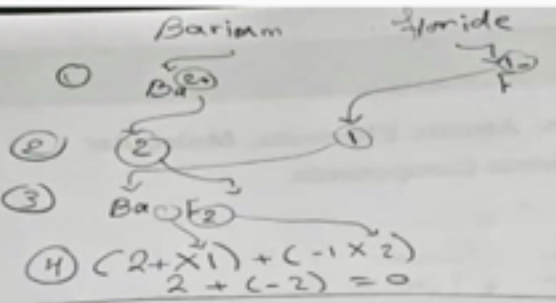 Barium floride
① Ba 2+ F 1-
② 2 1
③ Ba F2
④ (2+ X1) + (-1 X 2)
2 + (-2) = 0